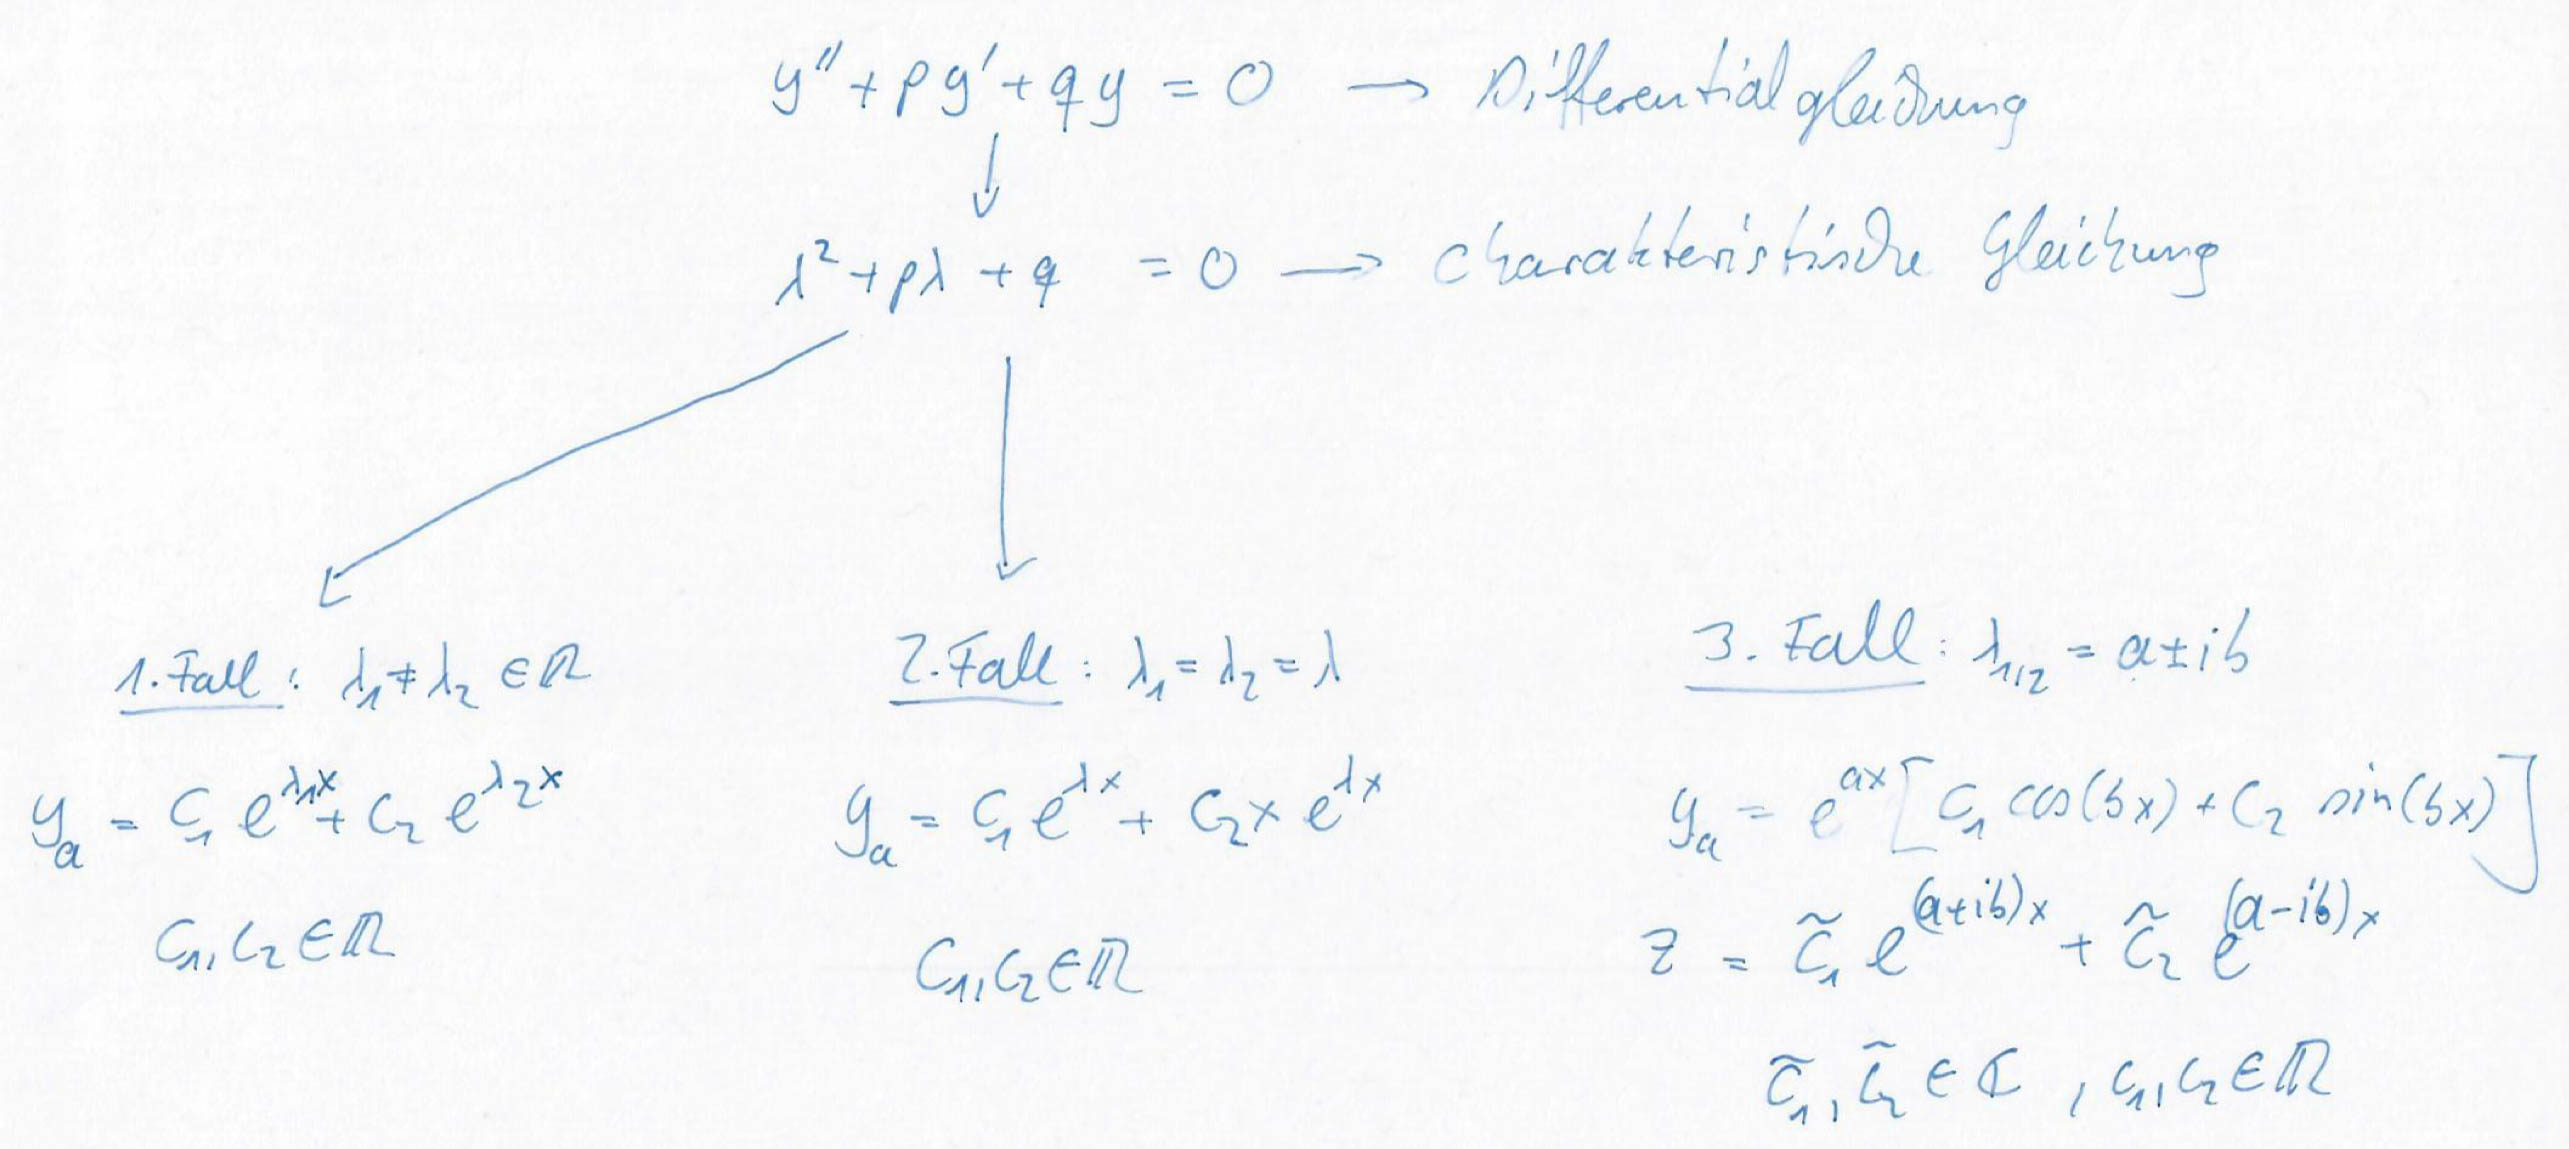 y'' + py' + qy = 0 → Differentialgleichung
↓
λ² + pλ + q = 0 → Charakteristische Gleichung
1. Fall: λ₁ ≠ λ₂ ∈ ℝ
yₐ = C₁ e^{λ₁x} + C₂ e^{λ₂x}
C₁, C₂ ∈ ℝ
2. Fall: λ₁ = λ₂ = λ
yₐ = C₁ e^{λx} + C₂ x e^{λx}
C₁, C₂ ∈ ℝ
3. Fall: λ₁/₂ = a ± ib
yₐ = e^{ax} [C₁ cos(bx) + C₂ sin(bx)]
z = C̃₁ e^{(a+ib)x} + C̃₂ e^{(a-ib)x}
C̃₁, C̃₂ ∈ ℂ, C₁, C₂ ∈ ℝ